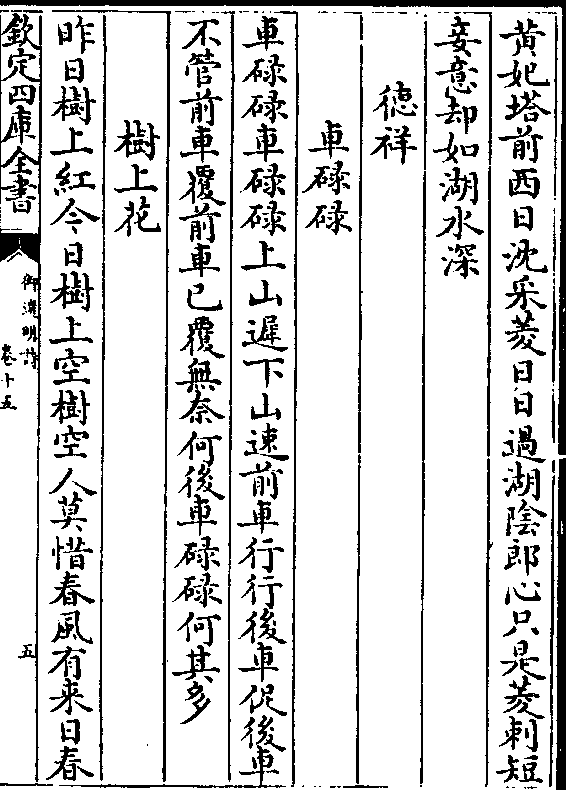 黄妃塔前西日沈采菱日日過湖陰郎心只是菱刺短
妾意却如湖水深
德祥
車碌碌
車碌碌車碌碌上山遲下山速前車行行後車促後車
不管前車覆前車已覆無奈何後車碌碌何其多
樹上花
昨日樹上紅今日樹上空樹空人莫惜春風有来日春
欽定四庫全書
御選明詩
卷十五
五